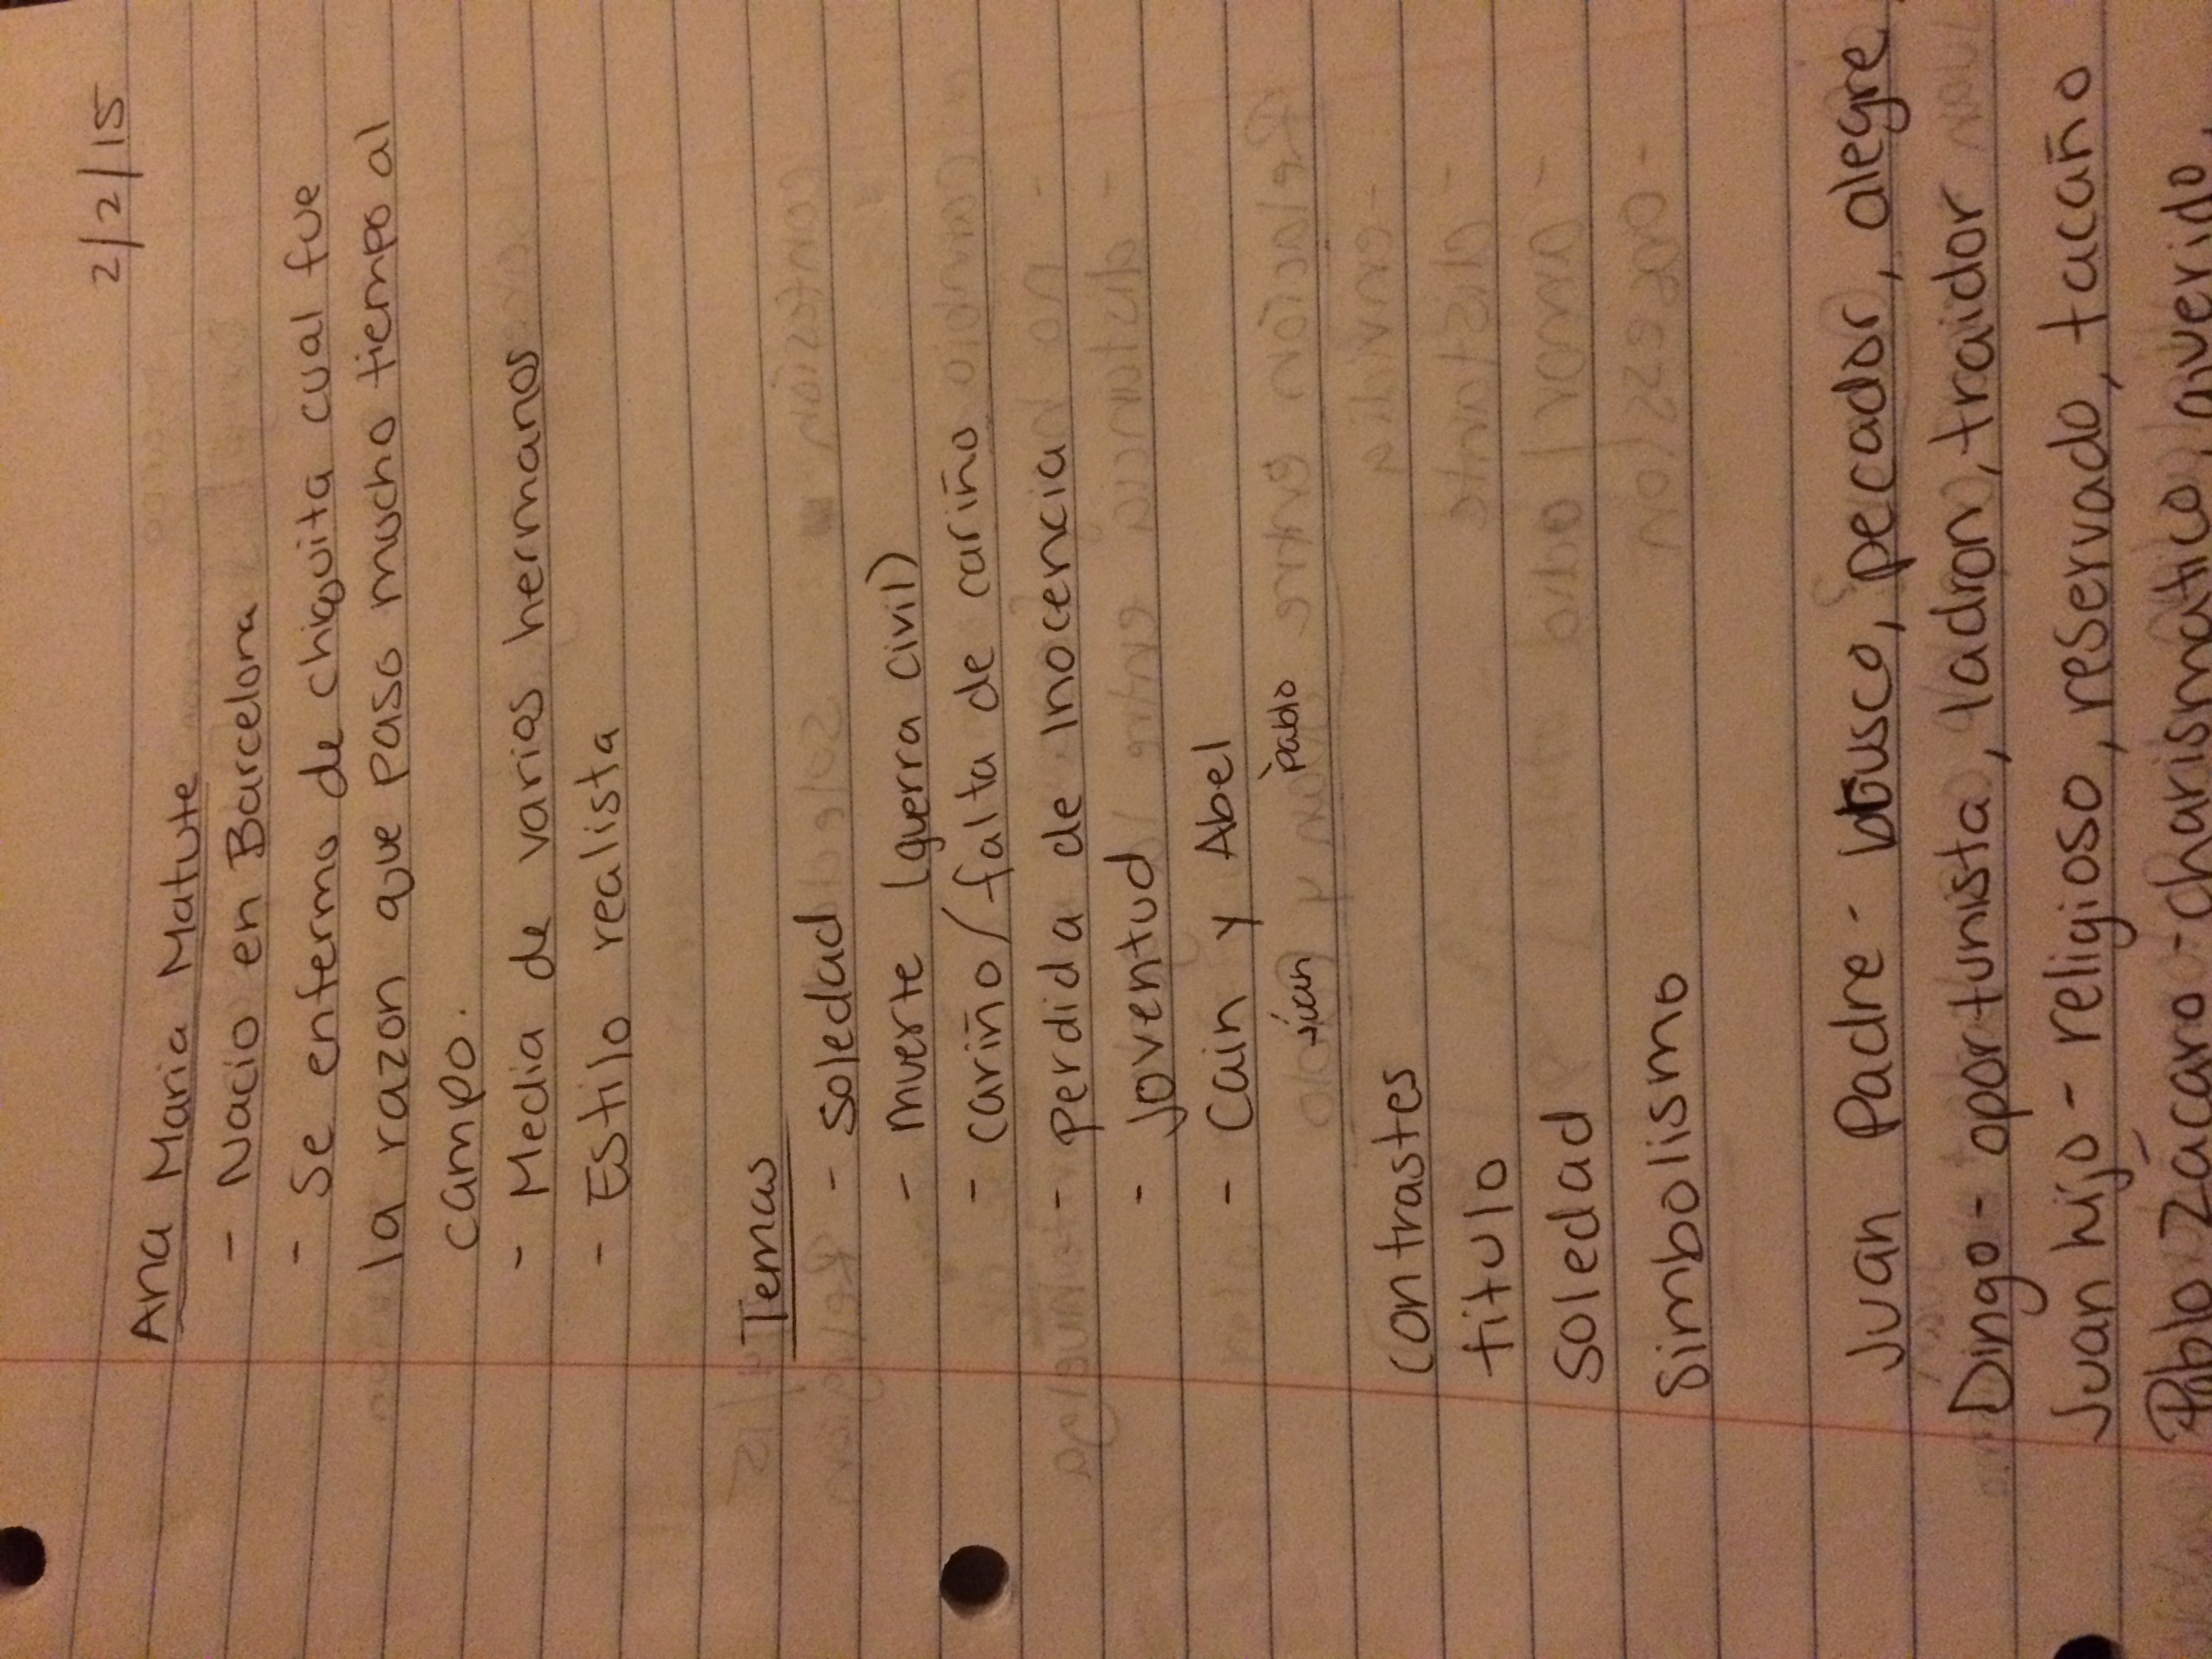 2/2/15
Ana Maria Matute
- Nacio en Barcelona
- Se enfermo de chiquita cual fue
la razon que paso mucho tiempo al
campo.
- Media de varios hermanos
- Estilo realista
Temas
- Soledad
- Muerte (guerra civil)
- cariño/falta de cariño
- Perdida de Inocencia
- Joventud
- Cain y Abel
juan pablo
Contrastes
titulo
Soledad
Simbolismo
Juan Padre - busco, pecador, alegre,
Dingo - oportunista, ladron, traidor
Juan hijo - religioso, reservado, tacaño
Pablo Zácaro - charismatico,